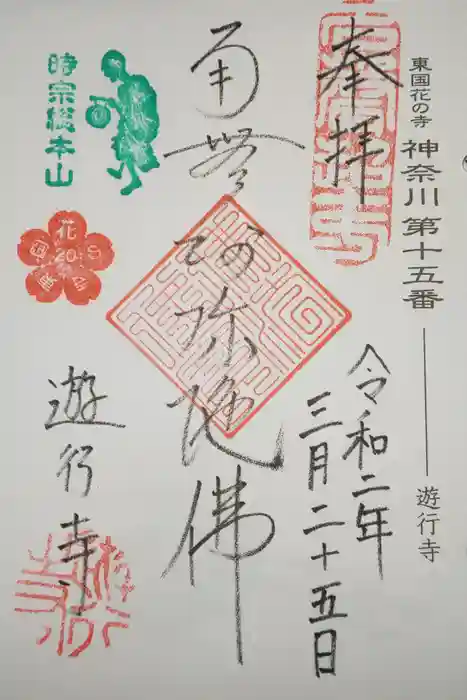 東国花の寺
神奈川 第十五番
遊行寺
奉拝
令和二年
三月二十五日
南無
阿弥陀佛
時宗総本山
花
20
遊行寺